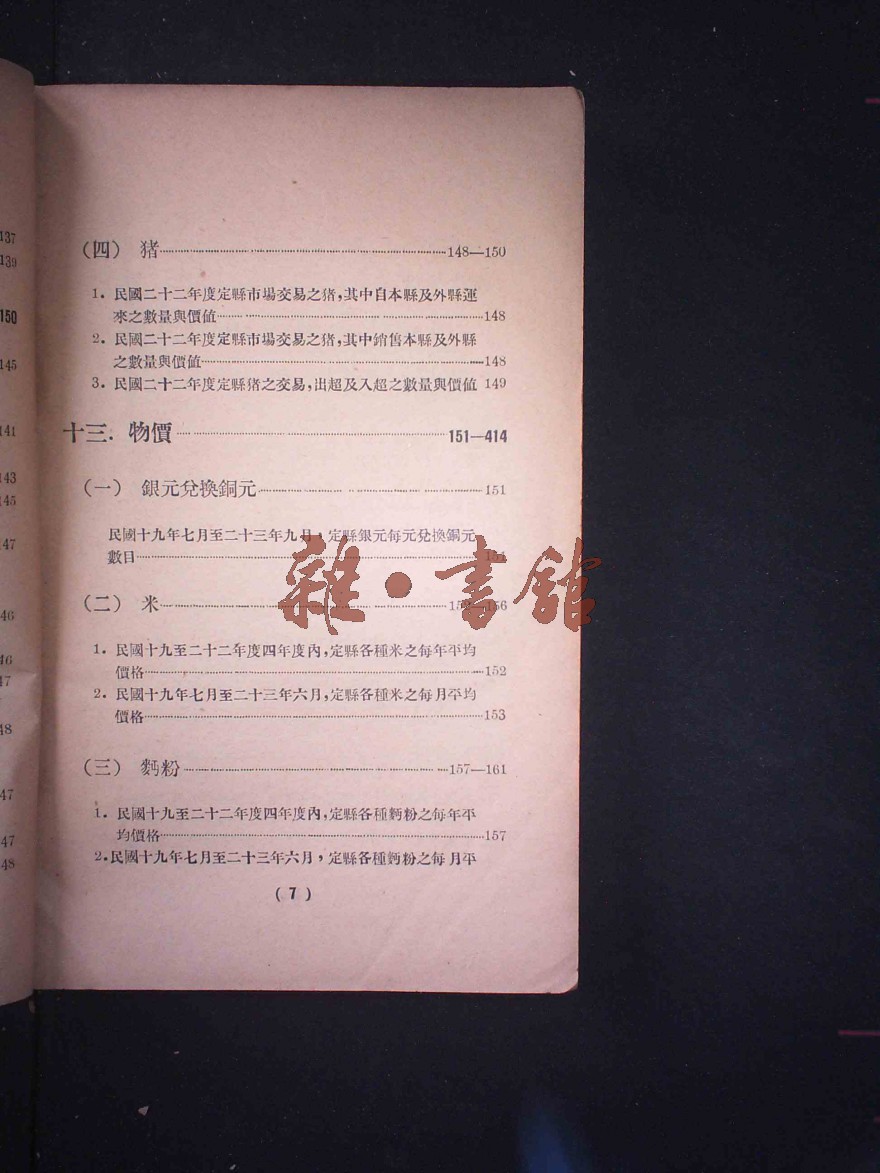 137
139
150
145
141
143
145
147
146
146
147
148
147
147
148
（四） 猪……148—150
1. 民國二十二年度定縣市場交易之猪,其中自本縣及外縣運
來之數量與價値……148
2. 民國二十二年度定縣市場交易之猪,其中銷售本縣及外縣
之數量與價値……148
3. 民國二十二年度定縣猪之交易,出超及入超之數量與價値 149
十三. 物價……151—414
（一） 銀元兌換銅元……151
民國十九年七月至二十三年九月，定縣銀元每元兌換銅元
數目……151
雜•書館
（二） 米……152—156
1. 民國十九至二十二年度四年度內,定縣各種米之每年平均
價格……152
2. 民國十九年七月至二十三年六月,定縣各種米之每月平均
價格……153
（三） 麪粉……157—161
1. 民國十九至二十二年度四年度內,定縣各種麪粉之每年平
均價格……157
2.民國十九年七月至二十三年六月，定縣各種麪粉之每月平
( 7 )